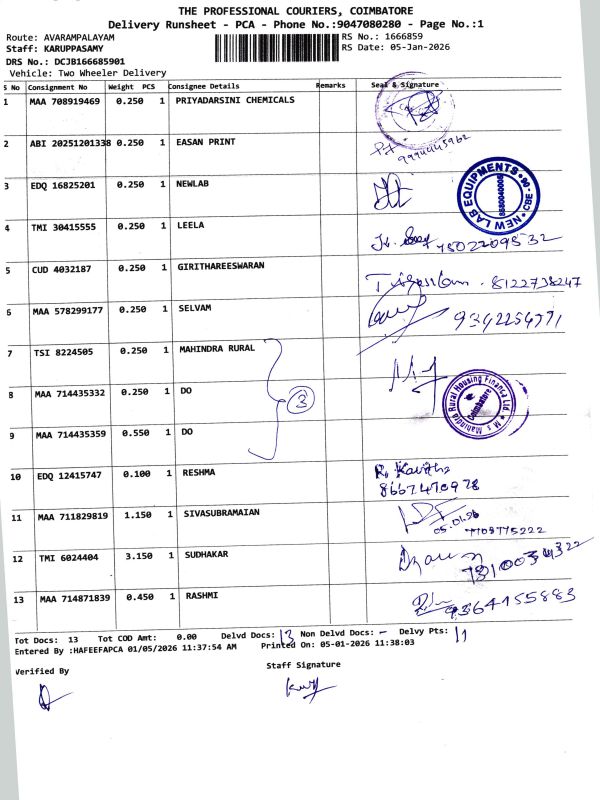 THE PROFESSIONAL COURIERS, COIMBATORE
Delivery Runsheet - PCA - Phone No.:9047080280 - Page No.:1
Route: AVARAMPALAYAM
Staff: KARUPPASAMY
DRS No.: DCJB166685901
Vehicle: Two Wheeler Delivery
RS No.: 1666859
RS Date: 05-Jan-2026
S No Consignment No Weight PCS Consignee Details Remarks Seal & Signature
1 MAA 708919469 0.250 1 PRIYADARSINI CHEMICALS
2 ABI 20251201338 0.250 1 EASAN PRINT
9994445962
3 EDQ 16825201 0.250 1 NEWLAB
NEW LAB EQUIPMENTS CBE
4 TMI 30415555 0.250 1 LEELA
7502209532
5 CUD 4032187 0.250 1 GIRITHAREESWARAN
8122738247
6 MAA 578299177 0.250 1 SELVAM
7 TSI 8224505 0.250 1 MAHINDRA RURAL
8 MAA 714435332 0.250 1 DO
3
Mahindra Rural Housing Finance Ltd Coimbatore
9 MAA 714435359 0.550 1 DO
10 EDQ 12415747 0.100 1 RESHMA
R. Kavitha
8667470978
11 MAA 711829819 1.150 1 SIVASUBRAMAIAN
05.01.26
7708775222
12 TMI 6024404 3.150 1 SUDHAKAR
13 MAA 714871839 0.450 1 RASHMI
9364155883
Tot Docs: 13 Tot COD Amt: 0.00 Delvd Docs: 13 Non Delvd Docs: - Delvy Pts: 11
Entered By :HAFEEFAPCA 01/05/2026 11:37:54 AM Printed On: 05-01-2026 11:38:03
Verified By
Staff Signature